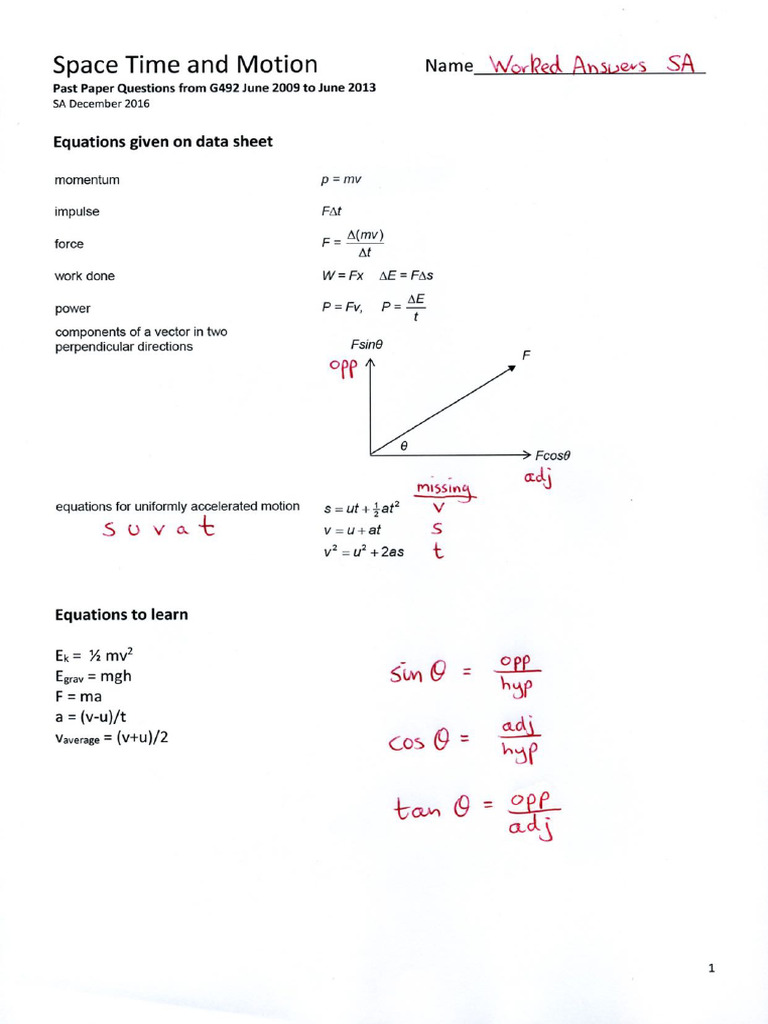 Space Time and Motion Name Worked Answers SA
Past Paper Questions from G492 June 2009 to June 2013
SA December 2016
Equations given on data sheet
momentum p = mv
impulse FΔt
force F = Δ(mv)/Δt
work done W = Fx ΔE = FΔs
power P = Fv, P = ΔE/t
components of a vector in two
perpendicular directions
Fsinθ
opp
F
θ
Fcosθ
adj
missing
equations for uniformly accelerated motion s = ut + ½at² v
s u v a t v = u + at s
v² = u² + 2as t
Equations to learn
Eₖ = ½ mv²
E_grav = mgh
F = ma
a = (v-u)/t
v_average = (v+u)/2
sin θ = opp/hyp
cos θ = adj/hyp
tan θ = opp/adj
1